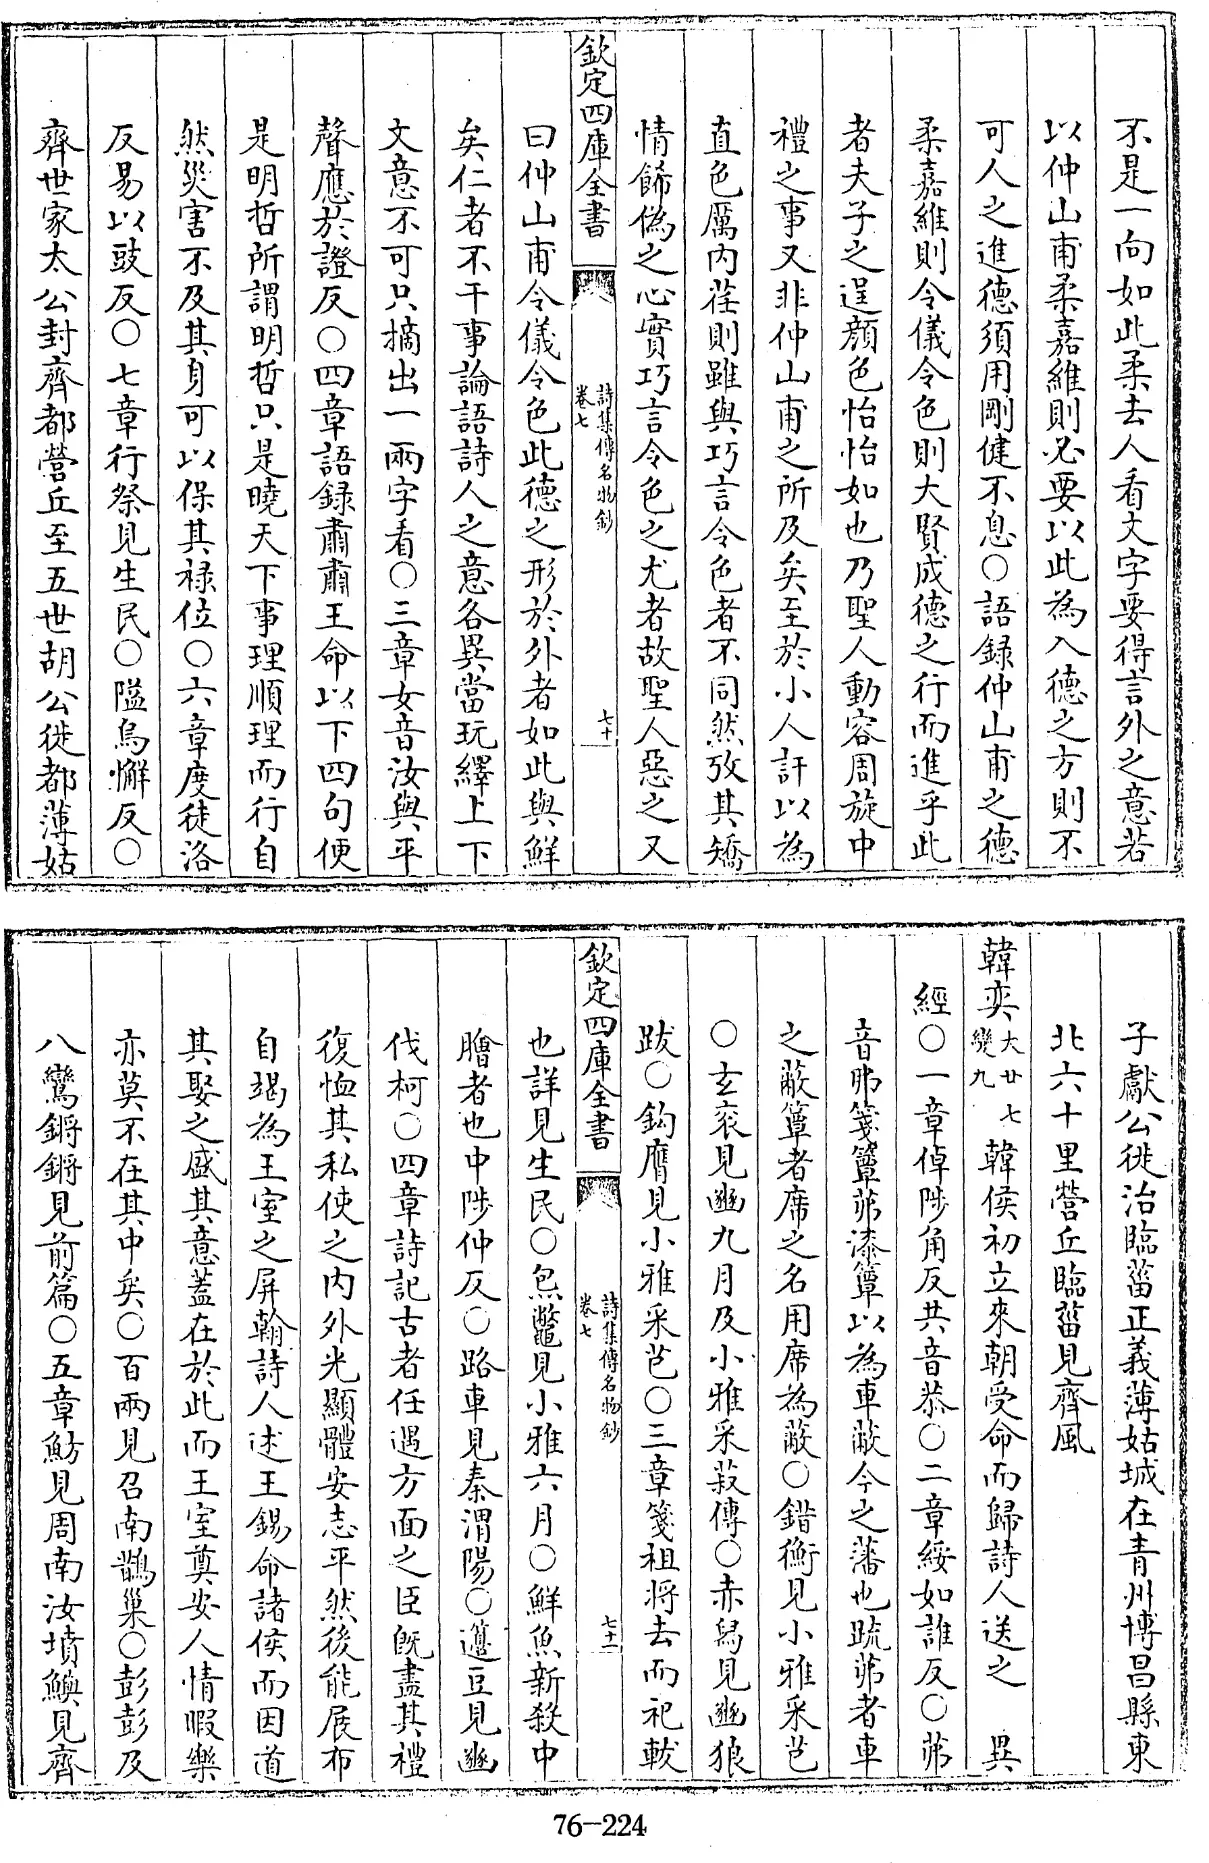 不是一向如此柔去人看文字要得言外之意若
以仲山甫柔嘉維則必要以此為入德之方則不
可人之進德須用剛健不息○語録仲山甫之德
柔嘉維則令儀令色則大賢成德之行而進乎此
者夫子之逞顔色怡怡如也乃聖人動容周旋中
禮之事又非仲山甫之所及矣至於小人訐以為
直色厲内荏則雖與巧言令色者不同然攷其矯
情飾偽之心實巧言令色之尤者故聖人惡之又
欽定四庫全書
詩集傳名物鈔
卷七
七十
曰仲山甫令儀令色此德之形於外者如此與鮮
矣仁者不干事論語詩人之意各異當玩繹上下
文意不可只摘出一兩字看○三章女音汝與平
聲應於證反○四章語録肅肅王命以下四句便
是明哲所謂明哲只是曉天下事理順理而行自
然災害不及其身可以保其禄位○六章度徒洛
反易以豉反○七章行祭見生民○隘烏懈反○
齊世家太公封齊都營丘至五世胡公徙都薄姑
子獻公徙治臨菑正義薄姑城在青州博昌縣東
北六十里營丘臨菑見齊風
韓奕大廿七變九韓侯初立來朝受命而歸詩人送之 異
經○一章倬陟角反共音恭○二章綏如誰反○茀
音弗箋簟茀漆簟以為車蔽今之藩也疏茀者車
之蔽簟者席之名用席為蔽○錯衡見小雅采芑
○玄衮見豳九月及小雅采菽傳○赤舄見豳狼
跋○鈎膺見小雅采芑○三章箋祖將去而祀軷
欽定四庫全書
詩集傳名物鈔
卷七
七十一
也詳見生民○炰鼈見小雅六月○鮮魚新殺中
膾者也中陟仲反○路車見秦渭陽○籩豆見豳
伐柯○四章詩記古者任遇方面之臣既盡其禮
復恤其私使之内外光顯體安志平然後能展布
自竭為王室之屏翰詩人述王錫命諸侯而因道
其娶之盛其意蓋在於此而王室奠安人情暇樂
亦莫不在其中矣○百兩見召南鵲巢○彭彭及
八鸞鏘鏘見前篇○五章魴見周南汝墳鱮見齊
76-224